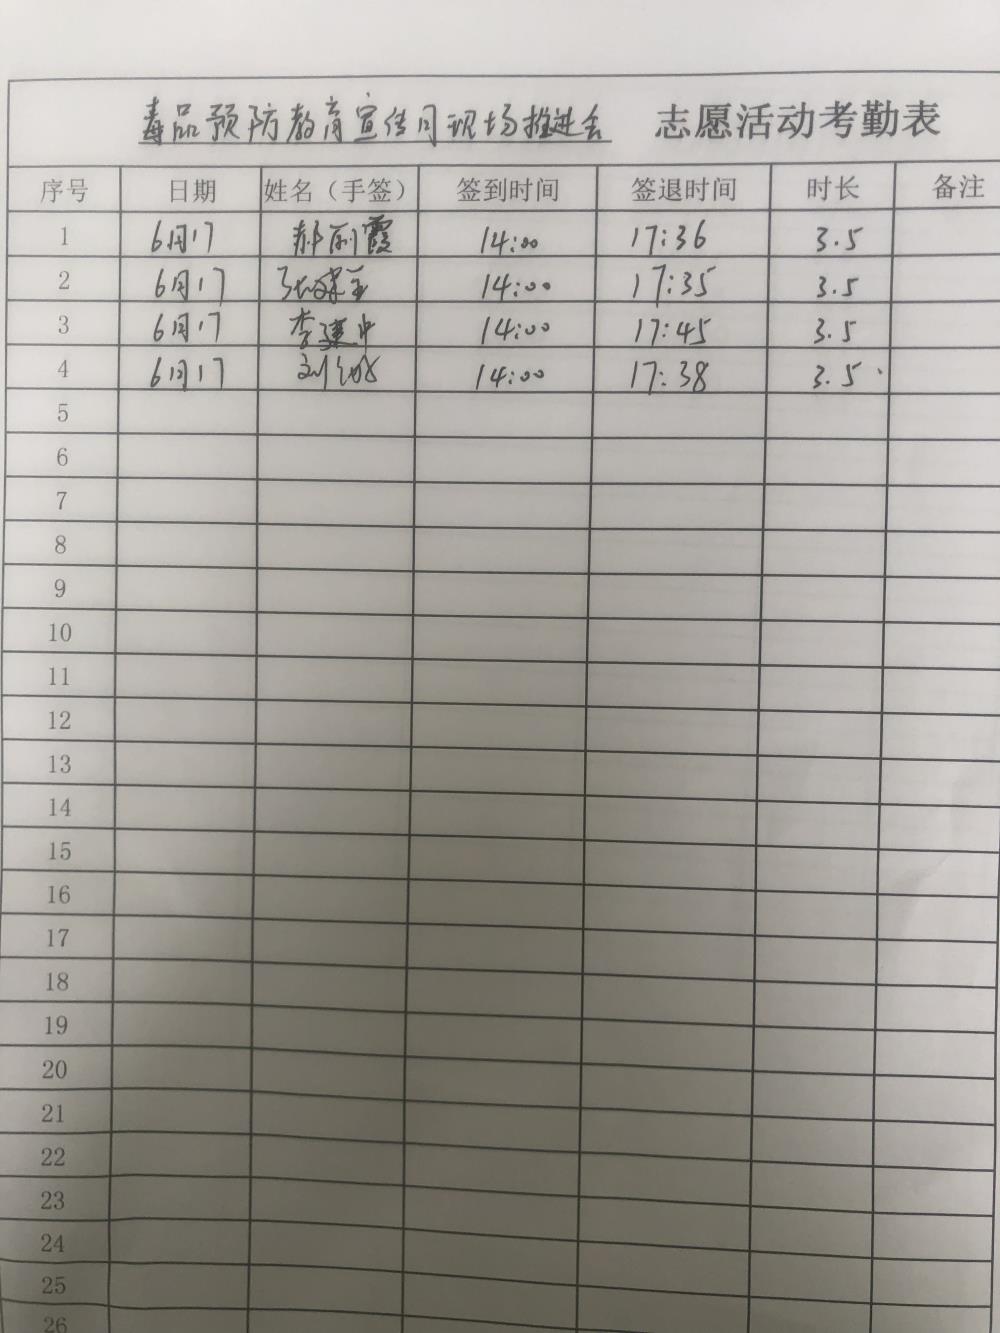 毒品预防教育宣传月现场推进会 志愿活动考勤表
序号 日期 姓名（手签） 签到时间 签退时间 时长 备注
1 6月17 郝丽霞 14:00 17:36 3.5
2 6月17 14:00 17:35 3.5
3 6月17 李建中 14:00 17:45 3.5
4 6月17 14:00 17:38 3.5
5
6
7
8
9
10
11
12
13
14
15
16
17
18
19
20
21
22
23
24
25
26